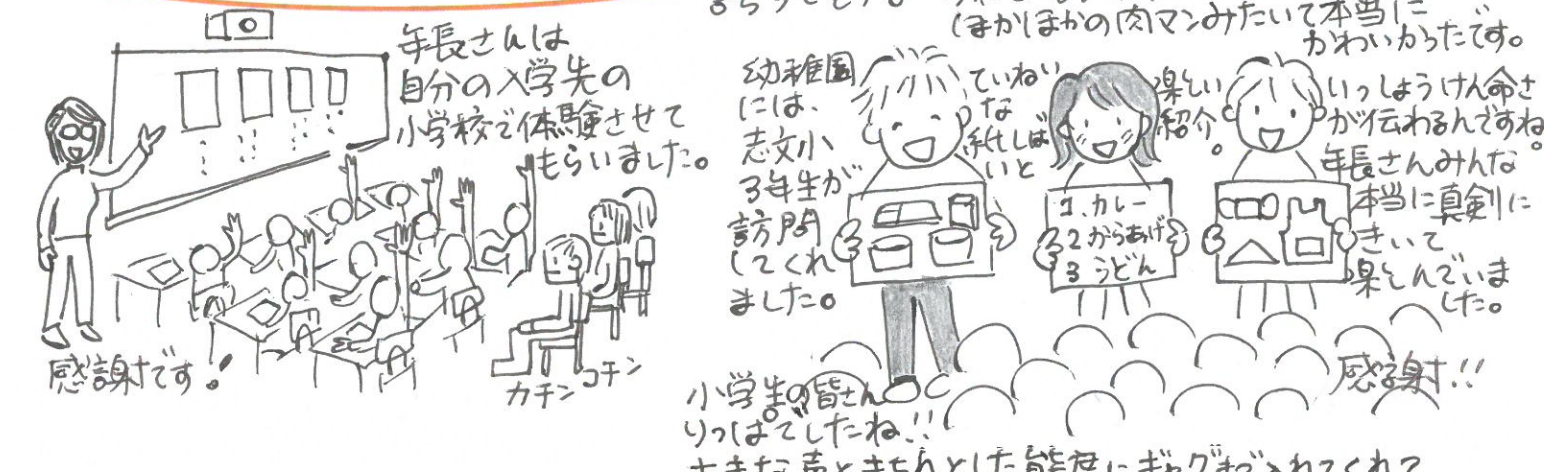 年長さんは
自分の入学先の
小学校で体験させて
もらいました。
感謝です!
カチン
コチン
(ほかほかの肉マンみたいで本当に
かわいかったです。
幼稚園
には、
志文小
3年生が
訪問
してくれ
ました。
ていねい
な
紙しば
いと
楽しい
紹介。
いっしょうけん命さ
が伝わるんですね。
年長さんみんな
本当に真剣に
きいて
楽しんでいま
した。
1、カレー
2 からあげ
3 うどん
感謝!!
小学生の皆さん
りっぱでしたね!!
大きな声ときちんとした態度にギャグまで入れてくれて